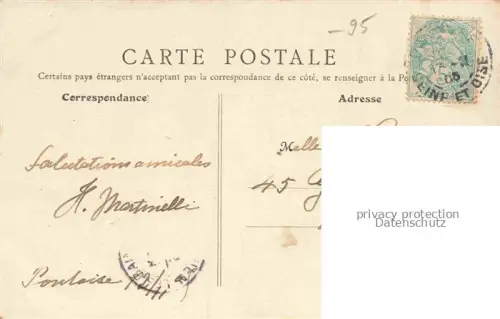 -95
CARTE POSTALE
Certains pays étrangers n'acceptant pas la correspondance de ce côté, se renseigner à la
Correspondance
Adresse
SEINE ET OISE
Melle
Salutations amicales
45
H. Martinelli
privacy protection
Ansichtskarten-Center
Pontoise